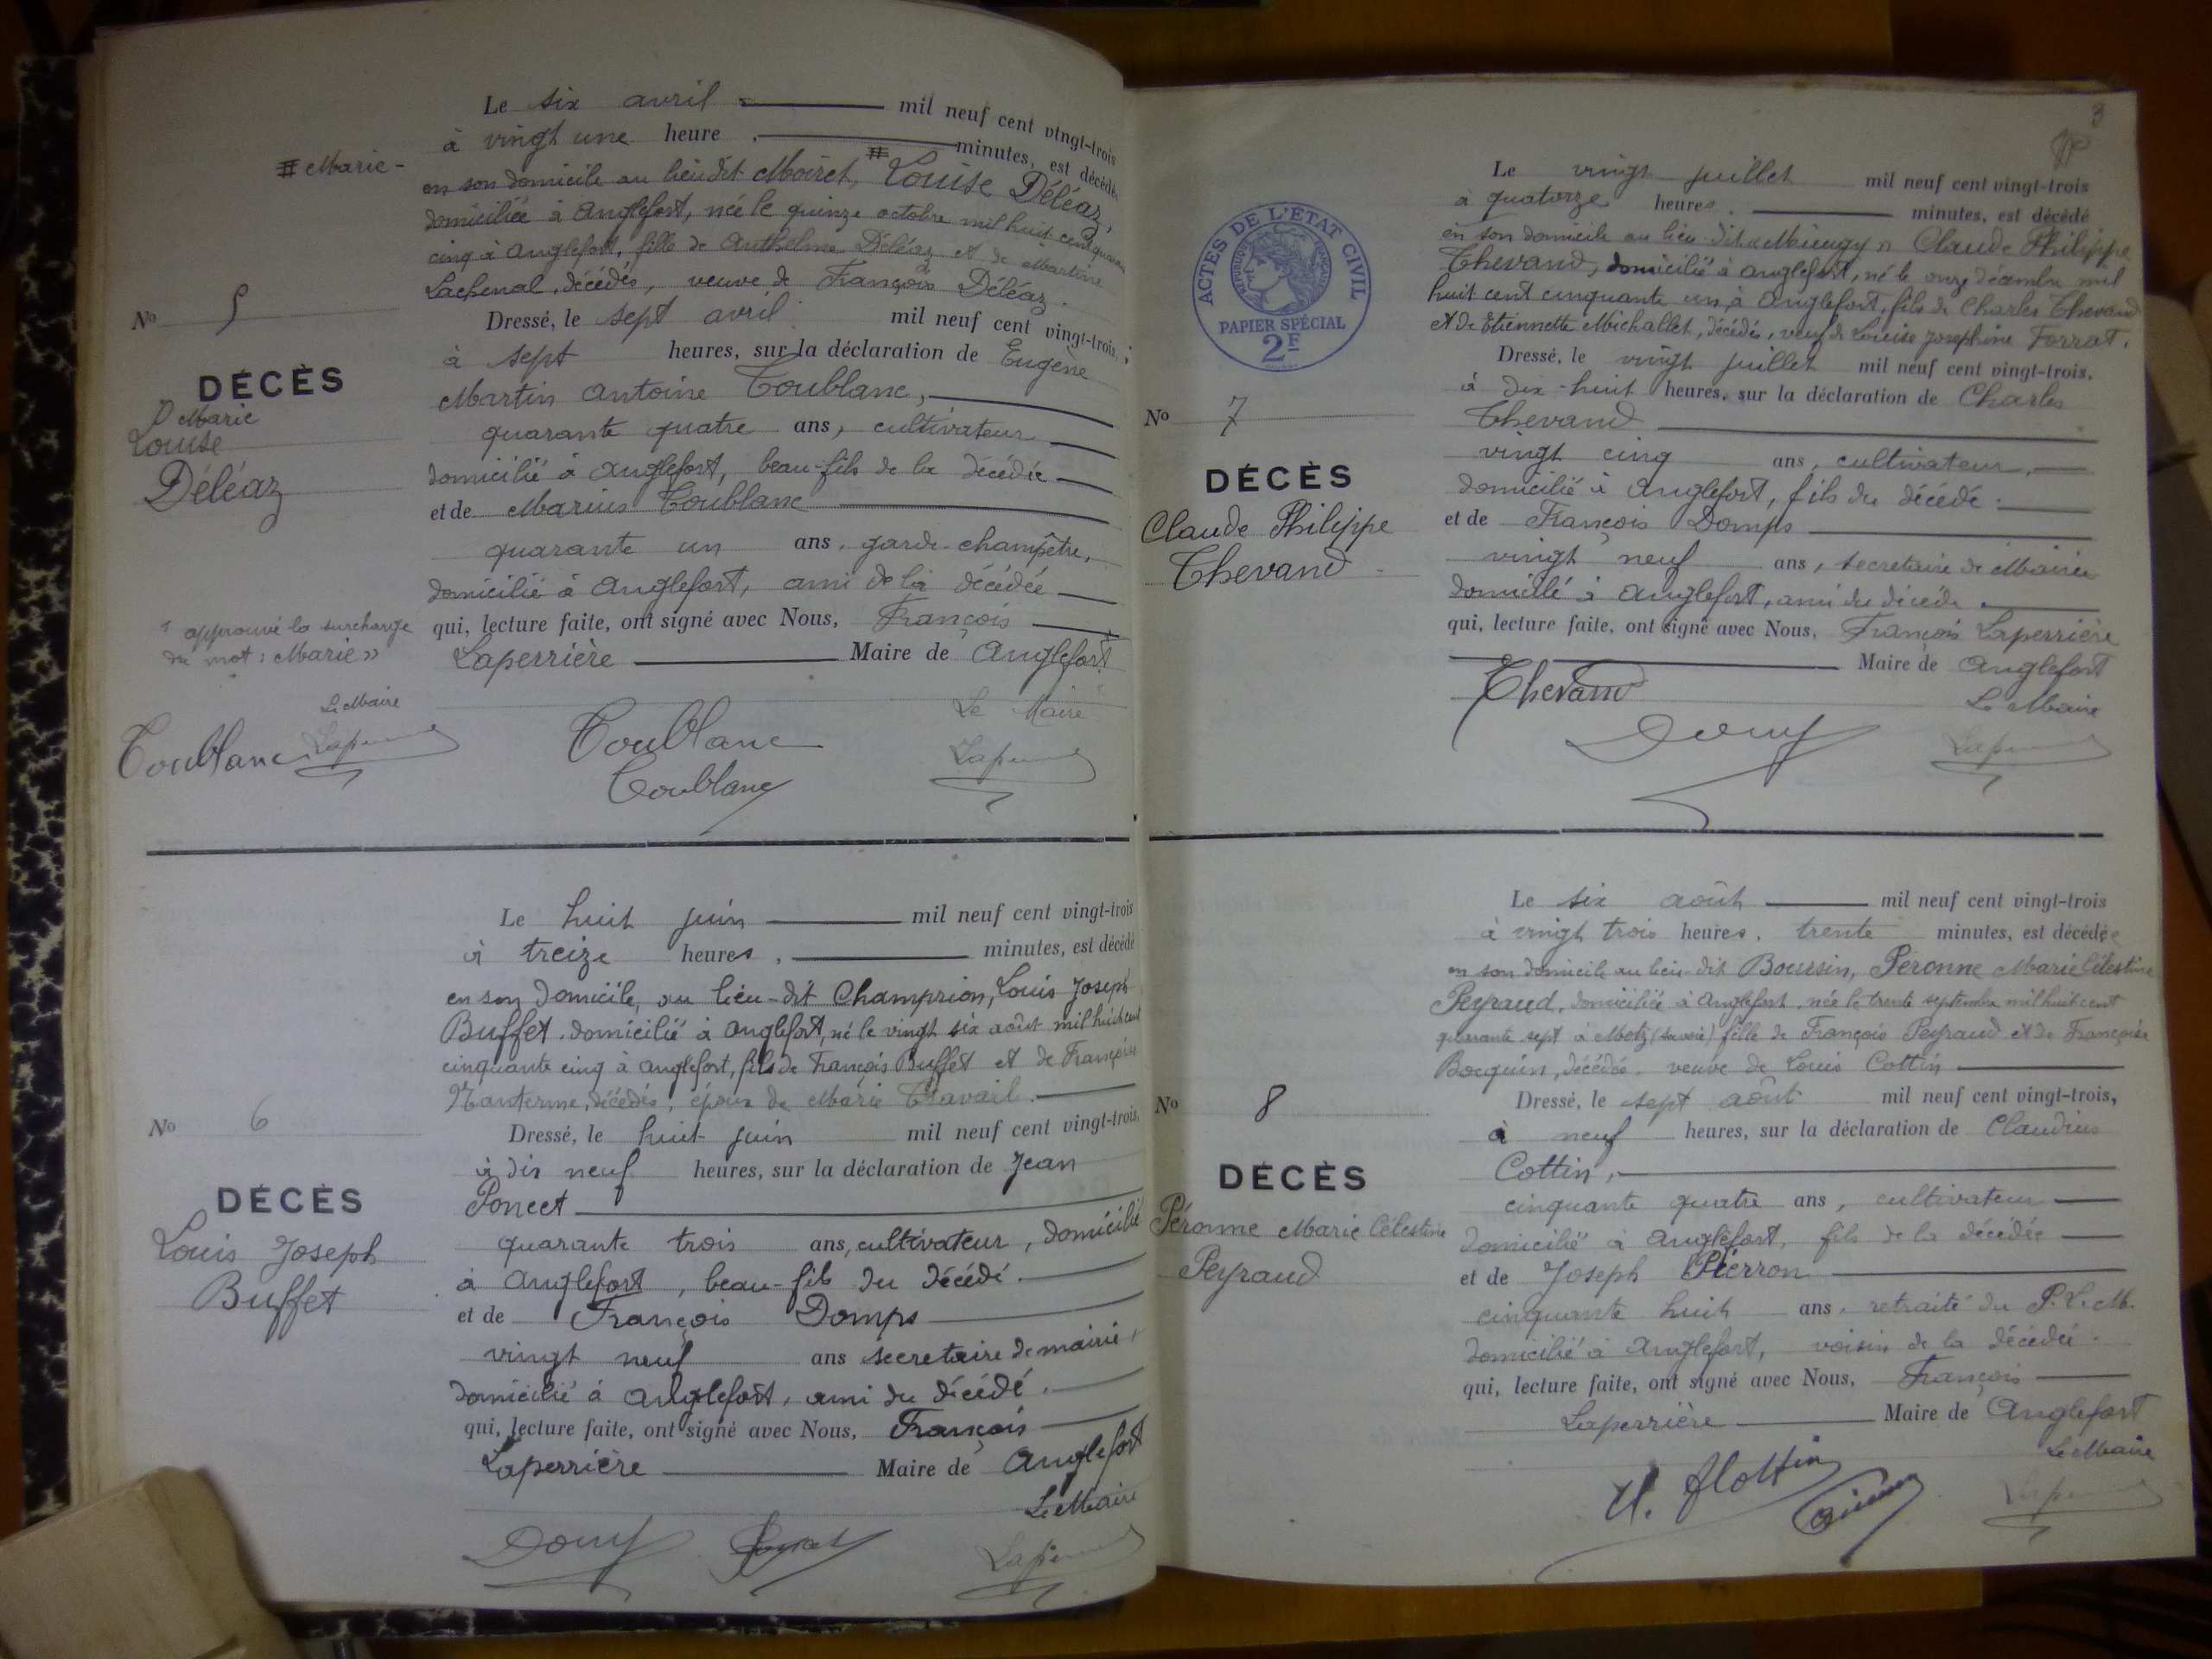 Le six avril mil neuf cent vingt-trois
à vingt une heure, minutes, est décédée
# Marie -
en son domicile au lieu dit Moiret, # Louise Déléaz,
domiciliée à Anglefort, née le quinze octobre mil huit cent quarante
cinq à Anglefort, fille de Anthelme Déléaz et de Martine
Lachenal, décédés, veuve de François Déléaz.
No 5
Dressé, le sept avril mil neuf cent vingt-trois,
à sept heures, sur la déclaration de Eugène
DÉCÈS
Marie
Louise
Déléaz
Martin Antoine Toublanc,
quarante quatre ans, cultivateur
domicilié à Anglefort, beau-fils de la décédée
et de Marius Toublanc
quarante un ans, garde-champêtre,
domicilié à Anglefort, ami de la décédée
qui, lecture faite, ont signé avec Nous, François
Laperrière Maire de Anglefort
approuvé la surcharge
du mot: Marie»
Le Maire
Toublanc
Toublanc
Toublanc
Le Maire
Le huit juin mil neuf cent vingt-trois
à treize heures, minutes, est décédé
en son domicile, au lieu-dit Champrion, Louis Joseph
Buffet, domicilié à Anglefort, né le vingt six août mil huit cent
cinquante cinq à Anglefort, fils de François Buffet et de Françoise
Nanterme, décédés, époux de Marie Travail.
No 6
Dressé, le huit juin mil neuf cent vingt-trois,
à dix neuf heures, sur la déclaration de Jean
DÉCÈS
Louis Joseph
Buffet
Poncet
quarante trois ans, cultivateur, domicilié
à Anglefort, beau-fils du décédé.
et de François Domps
vingt neuf ans secretaire de mairie,
domicilié à Anglefort, ami du décédé.
qui, lecture faite, ont signé avec Nous, François
Laperrière Maire de Anglefort
Le Maire
3
ACTES DE L'ÉTAT CIVIL
RÉPUBLIQUE FRANÇAISE
PAPIER SPÉCIAL
2F
Le vingt juillet mil neuf cent vingt-trois
à quatorze heures, minutes, est décédé
en son domicile au lieu-dit « Mieugy » Claude Philippe
Thevand, domicilié à Anglefort, né le onze décembre mil
huit cent cinquante un à Anglefort, fils de Charles Thevand
et de Etiennette Michallet, décédés, veuf de Louise Josephine Forrat.
Dressé, le vingt juillet mil neuf cent vingt-trois,
à dix-huit heures, sur la déclaration de Charles
No 7
DÉCÈS
Claude Philippe
Thevand
Thevand
vingt cinq ans, cultivateur,
domicilié à Anglefort, fils du décédé.
et de François Domps
vingt neuf ans, secretaire de Mairie
domicilié à Anglefort, ami du décédé.
qui, lecture faite, ont signé avec Nous, François Laperrière
Maire de Anglefort
Thevand
Le Maire
Le six août mil neuf cent vingt-trois
à vingt trois heures, trente minutes, est décédée
en son domicile au lieu-dit Boursin, Peronne Marie Célestine
Peyraud, domiciliée à Anglefort, née le trente septembre mil huit cent
quarante sept à Motz (Savoie) fille de François Peyraud et de Françoise
Bocquin, décédés, veuve de Louis Cottin
No 8
Dressé, le sept août mil neuf cent vingt-trois,
à neuf heures, sur la déclaration de Claudius
DÉCÈS
Péronne Marie Célestine
Peyraud
Cottin,
cinquante quatre ans, cultivateur
domicilié à Anglefort, fils de la décédée
et de Joseph Pierron
cinquante huit ans, retraité du P.L.M.
domicilié à Anglefort, voisin de la décédée.
qui, lecture faite, ont signé avec Nous, François
Laperrière Maire de Anglefort
Le Maire